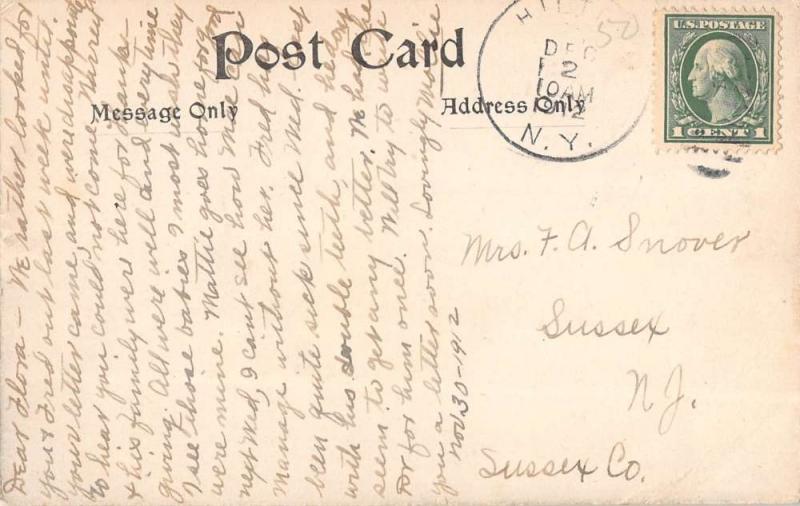 Post Card
Message Only
Address Only
HILT
DEC
2
10 AM
1912
N.Y.
50
U.S. POSTAGE
1 CENT 1
Mrs. F. A. Snover
Sussex
N.J.
Sussex Co.
Dear Flora — We rather looked for
you & Fred out last week until
your letter came, and were disappointed
to hear you could not come.
& his family were here for Thanks-
giving. All were well and every time
I see those babies I most wish they
were mine. Mattie goes home for good
next Wed, I can't see how Mae can
manage without her. Fred has
been quite sick since Wed.
with his double teeth, and
seem to get any better. We had the
Dr for him once. Will try to write
you a letter soon. Lovingly
Nov. 30 - 1912